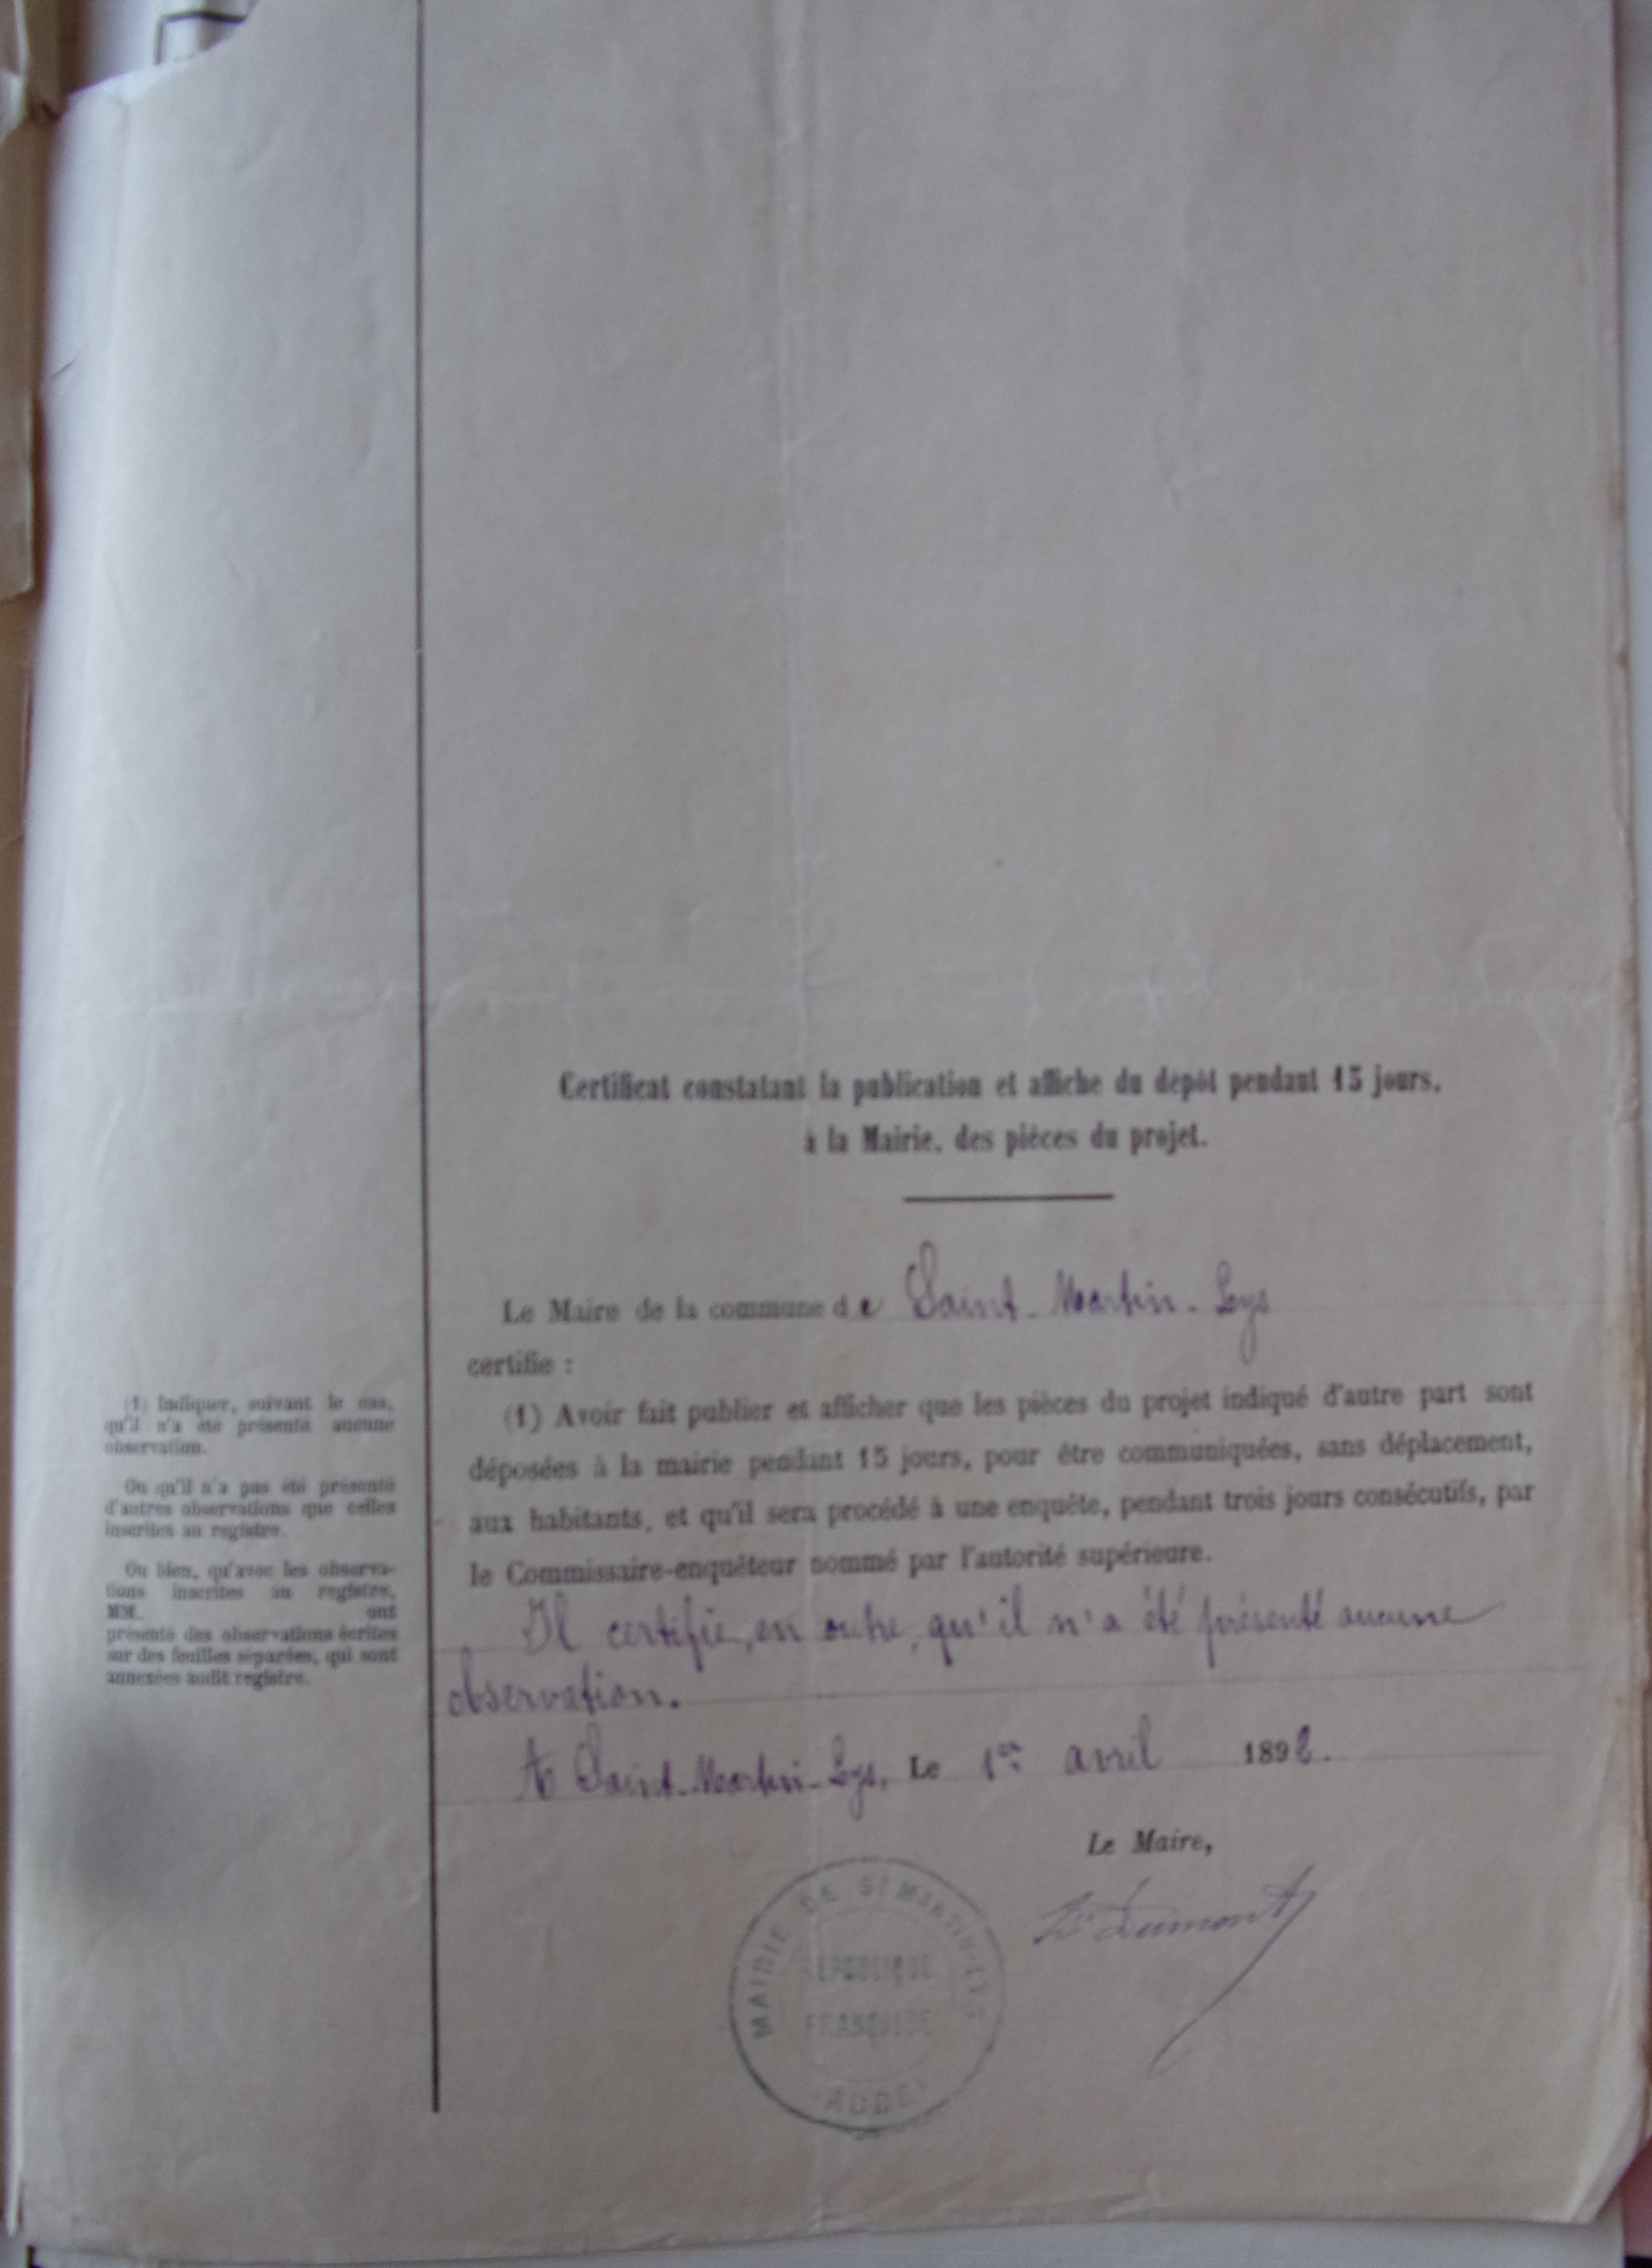 Certificat constatant la publication et affiche du dépôt pendant 15 jours,
à la Mairie, des pièces du projet.
Le Maire de la commune de Saint-Martin-Lys
certifie :
(1) Avoir fait publier et afficher que les pièces du projet indiqué d'autre part sont
déposées à la mairie pendant 15 jours, pour être communiquées, sans déplacement,
aux habitants, et qu'il sera procédé à une enquête, pendant trois jours consécutifs, par
le Commissaire-enquêteur nommé par l'autorité supérieure.
Il certifie, en outre, qu'il n'a été présenté aucune
observation.
A Saint-Martin-Lys, Le 1er avril 1892.
Le Maire,
Dumont
MAIRIE DE ST MARTIN-LYS
RÉPUBLIQUE
FRANÇAISE
AUDE
(1) Indiquer, suivant le cas,
qu'il n'a été présenté aucune
observation.
Ou qu'il n'a pas été présenté
d'autres observations que celles
inscrites au registre.
Ou bien, qu'avec les observa-
tions inscrites au registre,
MM. ont
présenté des observations écrites
sur des feuilles séparées, qui sont
annexées audit registre.